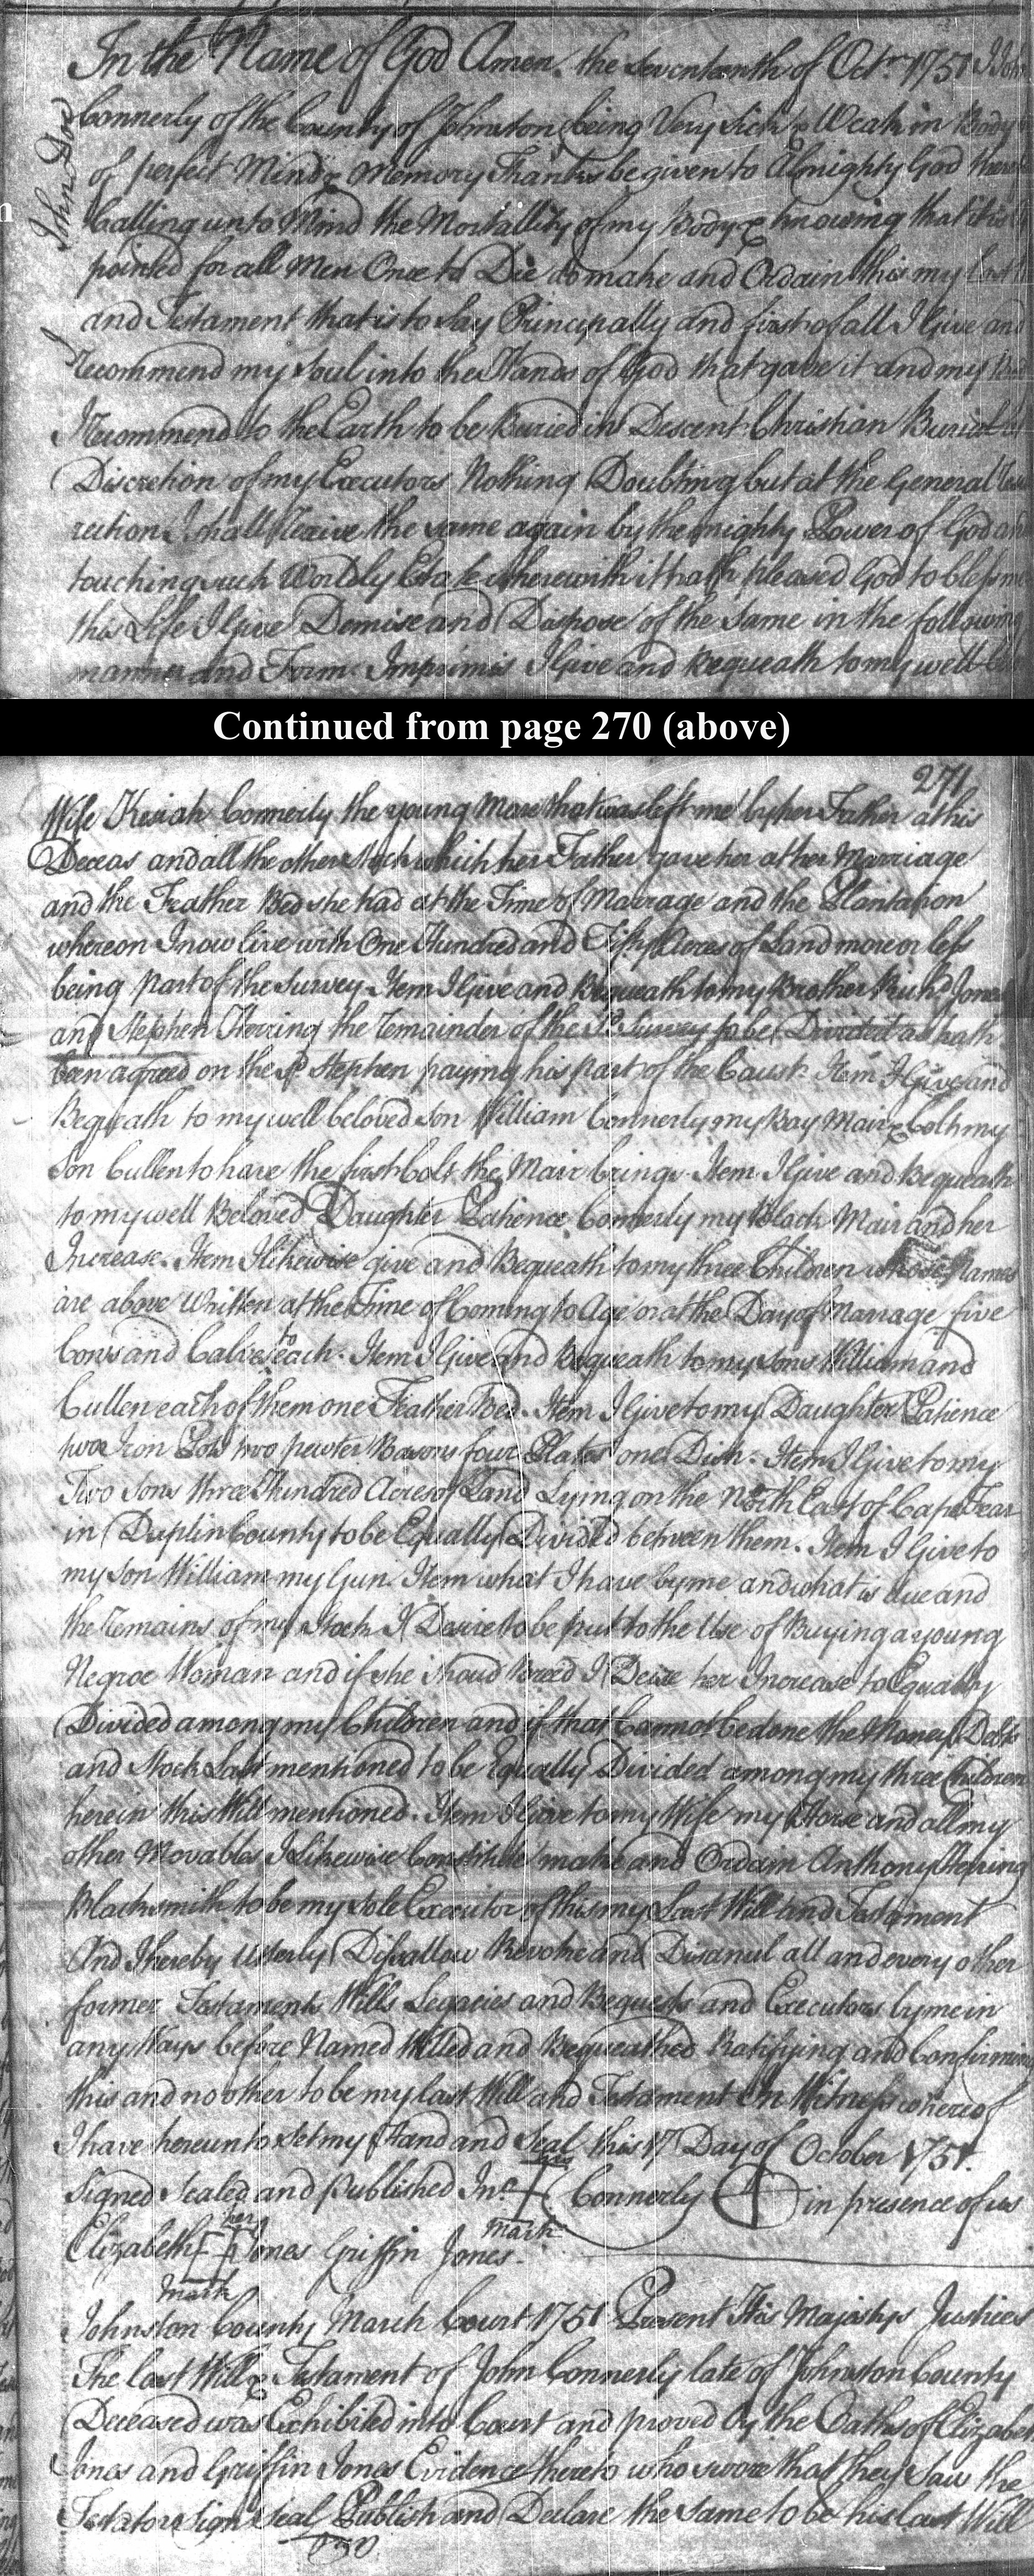 In the Name of God Amen. the seventeenth of Octr. 1751 I John
Connerly of the County of Johnston being Very Sick & Weak in Body
of perfect Mind & Memory Thanks be given to Almighty God
Calling unto Mind the Mortallity of my Body & knowing that it is
pointed for all Men Once to Die do make and Ordain this my Last
and Testament that is to say Principally and first of all I Give and
recommend my Soul into the Hands of God that gave it and my
I recommend to the Earth to be Buried in Descent Christian Burial
Discretion of my Executors Nothing Doubting but at the General
rection I shall Receive the same again by the mighty Power of God
touching such Worldly Estate wherewith it hath pleased God to bless me
this Life I Give Demise and Dispose of the Same in the following
manner and Form. Imprimis I Give and Bequeath to my well
John
Continued from page 270 (above)
271
Wife Keziah Connerly the young Mare that was left me by her Father at his
Deceas and all the other Stock which her Father gave her at her Marriage
and the Feather Bed she had at the Time of Marrage and the Plantation
whereon I now live with One Hundred and Fifty Acres of Land more or less
being part of the Survey. Item I Give and Bequeath to my Brother Richd. Jones
and Stephen Herring the remainder of the Sd. Survey to be Divided as hath
been agreed on the Sd. Stephen paying his part of the Caust. Item I Give and
Bequeath to my well beloved Son William Connerly my Bay Mair & Colt my
Son Cullen to have the first Colt the Mair brings. Item I Give and Bequeath
to my well Beloved Daughter Patience Connerly my Black Mair and her
Increase. Item I likewise give and Bequeath to my three Children whose Names
are above Written at the Time of Coming to Age or at the Day of Marrage five
Cows and Calves to each. Item I Give and Bequeath to my sons William and
Cullen each of them one Feather Bed. Item I Give to my Daughter Patience
two Iron Pots two pewter Basons four Plates one Dish. Item I Give to my
Two Sons three Hundred Acres of Land Lying on the North East of Cape Fear
in Duplin County to be Equally Divided between them. Item I Give to
my Son William my Gun. Item what I have by me and what is due and
the remains of my Stock I Desire to be put to the Use of Buying a young
Negroe Woman and if she shoud breed I Deise her Increase to Equally
Divided among my Children and if that Cannot be done the Money Debts
and Stock Last mentioned to be Equally Divided among my three Children
herein this Will mentioned. Item I Give to my Wife my Horse and all my
other Movables I Likewise Constitute make and Ordain Anthony Herring
Blacksmith to be my Sole Executor of this my Last Will and Testament
And I hereby Utterly Disallow Revoke and Disanul all and every other
former Testaments Wills Legacies and Bequests and Executors by me in
any Ways before Named Willed and Bequeathed Ratifying and Confirming
this and no other to be my last Will and Testament In Witness whereof
I have hereunto set my Hand and Seal this 17 Day of October 1751.
Signed Sealed and Published Jno. his mark Connerly in presence of us
Elizabeth her mark Jones Griffin Jones.
Johnston County March Court 1751 Present His Majestys Justices
The last Will & Testament of John Connerly late of Johnston County
Deceased was Exhibited into Court and proved by the Oaths of Elizabeth
Jones and Griffin Jones Evidence thereto who swore that they Saw the
Testator Sign Seal Publish and Declare the same to be his last Will